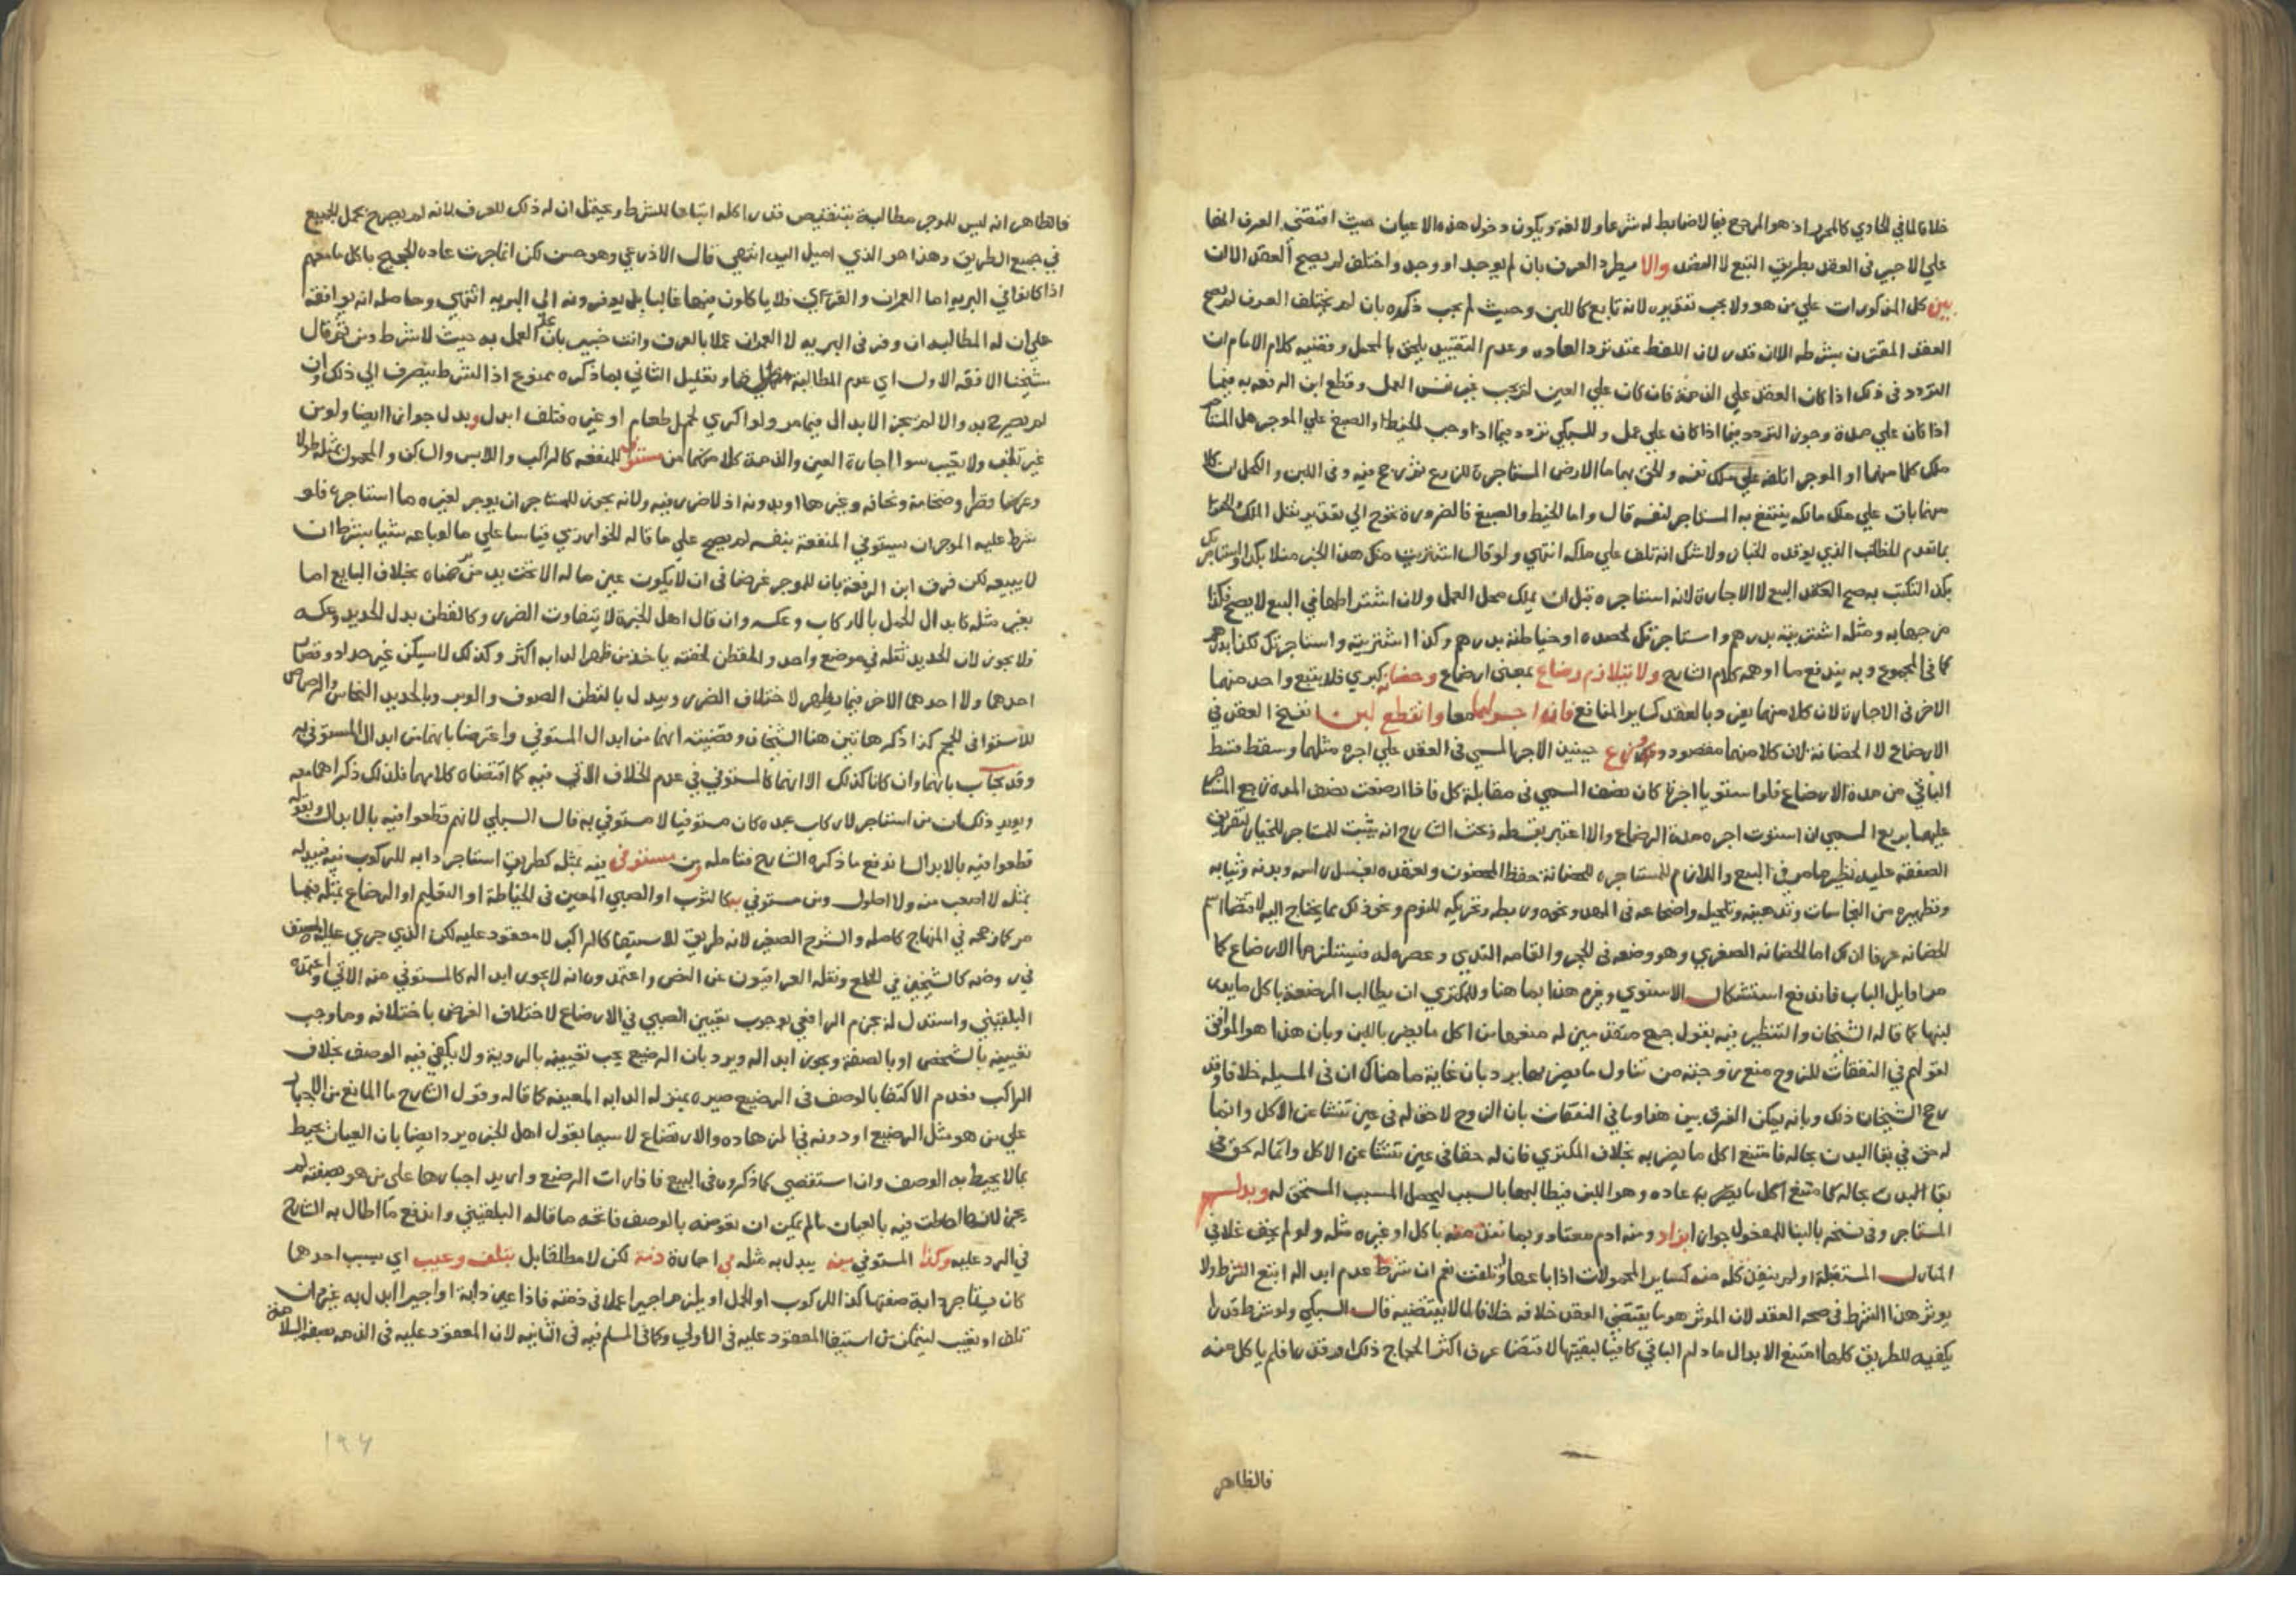 خلافا لما في الحاوي كالمحرر اذ هو المرجع فيما لا ضابط له شرعا ولا لغة ويكون دخول هذه الاعيان حيث اقتضى العرف انها
علي الاجير في العقد بطريق التبع لا القصد والا يطرد العرف بان لم يوجد او وجد واختلف لم يصح العقد الا ان
بين كل المذكورات علي من هو ولا يجب تقديره لانه تابع كاللبن وحيث لم يجب ذكره بان لم يختلف العرف لم يصح
العقد المقترن بشرطه الا ان قدر لان اللفظ عند تردد العادة وعدم التقييد يلحق بالمجمل وقضية كلام الامام ان
التردد في ذلك اذا كان العقد علي الذمة فان كان علي العين لم يجب غير نفس العمل وقطع ابن الرفعة به فيما
اذا كان علي مدة وجوز التردد فيما اذا كان علي عمل وللسبكي تردد فيما اذا وجب الخيط او الصبغ علي الموجر هل المستاجر
ملك كلا منهما او الموجر اتلفه علي ملك نفسه والحق بهما ما الارض المستاجرة للزرع ثم رجح فيه وفي اللبن والكحل ان كلا
منها باق علي ملك مالكه ينتفع به المستاجر لنفسه قال واما الخيط والصبغ فالضرورة تحوج الي تقدير نقل الملك والحقا
بما تقدم الحطب الذي يوقده الخباز ولا شك انه تلف علي ملكه انتهي ولو قال اشتريت منك هذا الحبر مثلا بكذا واستاجرتك
بكذا لتكتب به صح العقد البيع لا الاجارة لانه استاجره قبل ان يملك محل العمل ولان اشتراطها في البيع لا يصح فكذا
مزجها به ومثله اشتريته بدرهم واستاجرتك لحصده او خياطته بدرهم وكذا اشتريته واستاجرتك لكذا بدرهم
كما في المجموع وبه يندفع ما اوهمه كلام الشارح ولا تتلازم رضاع بمعنى ارضاع وحضانة كبري فلا يتبع واحد منهما
الاخر في الاجارة لان كلا منهما يفرد بالعقد كساير المنافع فان استوجر لهما معا وانقطع لبن انفسخ العقد في
الارضاع لا الحضانة لان كلا منهما مقصود ووزع حينيذ الاجر المسمي في العقد علي اجرة مثلهما وسقط قسط
الباقي من مدة الارضاع فلو استويا اجرة كان نصف المسمي في مقابلة كل فاذا ارضعت نصف المدة رجع المستاجر
عليها بربع المسمي ان استوت اجرة مدة الرضاع والا اعتبر بقسطه وبحث الشارح انه يثبت للمستاجر الخيار لتفريق
الصفقة عليه نظير ما مر في البيع واللازم للمستاجرة للحضانة حفظ المحضون وتعهده بغسل راسه وبدنه وثيابه
وتطهيره من النجاسات وتدهينه وتكحيله واضجاعه في المهد ونحوه وربطه وتحريكه للنوم ونحو ذلك مما يحتاج اليه لاقتضا اسم
الحضانة عرفا لذلك اما الحضانة الصغري وهو وضعه في الحجر والقامه الثدي وعصره له فيستلزمها الارضاع كما
مر اوايل الباب فاندفع استشكال الاسنوي وجزم هذا بما هنا وللمكتري ان يطالب المرضعة باكل ما يدر
لبنها كما قاله الشيخان والتنظير فيه بقول جمع متقدمين له منعها من اكل ما يضر باللبن وبان هذا هو الموافق
لقولهم في النفقات للزوج منع زوجته من تناول ما يضر بها يرد بان غاية ما هناك ان في المسيلة خلافا وقد
رجح الشيخان ذلك وبانه يمكن الفرق بين هذا وما في النفقات بان الزوج لا حق له في عين تنشا عن الاكل وانما
له حق في بقا البدن بحاله فامتنع اكل ما يضر به بخلاف المكتري فان له حقا في عين تنشا عن الاكل وانما له حق في
بقا البدن بحاله كما منع اكل ما يضر به عادة وهو اللبن فيطالبها بالسبب ليحصل المسبب المستحق له ويبدل
المستاجر وفي نسخة بالبنا للمفعول جوازا زاد ومنه ادم معتاد وربما نفذ منه باكل او غيره مثله ولو لم يخف غلا في
المنازل المستقبلة او لم ينفد كله منه كساير المحمولات اذا باعها او تلفت نعم ان شرط عدم ابداله اتبع الشرط ولا
يوثر هذا الشرط في صحة العقد لان الموثر هو ما يقتضي العقد خلافه خلافا لما لا يقتضيه قال السبكي ولو شرط قدرا
يكفيه للطريق كلها امتنع الابدال ما دام الباقي كافيا لبقيتها لاقتضا عرف اكثر الحجاج ذلك او قدرا فلم ياكل منه
فالظاهر
فالظاهر انه ليس للموجر مطالبة بتنقيص قدر اكله اتباعا للشرط ويحتمل ان له ذلك للعرف لانه لم يصرح بحمل الجميع
في جميع الطريق وهذا هو الذي اميل اليه انتهي قال الاذرعي وهو حسن لكن انما جرت عادة الحجيج باكل ما معهم
اذا كانوا في البرية اما العمران والقري فلا ياكلون منها غالبا بل يوفرونه الي البرية انتهي وحاصله انه يوافقه
علي ان له المطالبة ان وفر في البرية لا العمران عملا بالعرف وانت خبير بان محل العمل به حيث لا شرط ومن ثم قال
شيخنا الافقه الاول اي عدم المطالبة مطلقا وتعليل الثاني بما ذكره ممنوع اذ الشرط ينصرف الي ذلك وان
لم يصرح به والا لم يجز الابدال فيما مر ولو اكري لحمل طعام او غيره فتلف ابدل وبدل جوازا ايضا ولو من
غير تلف ولا تعيب سوا اجارة العين والذمة كلا منهما من مستوف للمنفعة كالراكب واللابس والساكن والمحمول بمثله طولا
وعرضا وقطرا وضخامة ونحافة وغيرها او بدونه اذ لا ضرر فيه ولانه يجوز للمستاجر ان يوجر لغيره ما استاجره فلو
شرط عليه الموجر ان يستوفي المنفعة بنفسه لم يصح علي ما قاله الخوارزمي قياسا علي ما لو باعه شيا بشرط ان
لا يبيعه لكن فرق ابن الرفعة بان للموجر غرضا في ان لا يكون عين ماله الا تحت يد من رضاه بخلاف البايع اما
بغير مثله كابدال الحمل بالاركاب وعكسه وان قال اهل الخبرة لا يتفاوت الضرر وكالقطن بدل الحديد وعكسه
فلا يجوز لان الحديد ثقله في موضع واحد والقطن لخفته ياخذ من ظهر الدابة اكثر وكذلك لا يسكن غير حداد وقصار
احدهما ولا احدهما الاخر فيما يظهر لاختلاف الضرر ويبدل بالقطن الصوف والوبر وبالحديد النحاس والرصاص
للاستوا في الحجم كذا ذكرها تين هنا الشيخان وقضيته انهما من ابدال المستوفي واعترضا بانهما من ابدال المستوفي به
وقد يجاب بانهما وان كانا كذلك الا انهما كالمستوفي في عدم الخلاف الاتي فيه كما اقتضاه كلامهما فلذلك ذكراهما معه
ويويد ذلك ان من استاجر لاركاب عبده كان مستوفيا لا مستوفي به قال السبكي لانهم قطعوا فيه بالابدال وبقوله
قطعوا فيه بالابدال اندفع ما ذكره الشارح فتامله ومن مستوفي فيه بمثله كطريق استاجر دابة للركوب فيه فيبدله
بمثله لا اصعب منه ولا اطول ومن مستوفي به كالثوب او الصبي المعين في الخياطة او التعليم او الرضاع بمثله فيها
مر كما رجحه في المنهاج كاصله والشرح الصغير لانه طريق للاستيفا كالراكب لا معقود عليه لكن الذي جري عليه المصنف
في روضه كالشيخين في الخلع ونقله العراقيون عن النص واعتمدوه انه لا يجوز ابداله كالمستوفي منه الاتي واعتمده
البلقيني واستدل له بجزم الرافعي بوجوب تعيين الصبي في الارضاع لاختلاف الغرض باختلافه وما وجب
تعيينه بالشخص او بالصفة وبجوز ابداله ويرد بان الرضيع يجب تعيينه بالروية ولا يكفي فيه الوصف بخلاف
الراكب فعدم الاكتفا بالوصف في الرضيع صيره بمنزلة الدابة المعينة كما قاله وقول الشارح ما المانع من الاجبار
علي من هو مثل الرضيع او دونه في الزهادة والارتضاع لا سيما بقول اهل الخبرة يرد ايضا بان العيان يحيط
بما لا يحيط به الوصف وان استقصي كما ذكروه في البيع فاذا رات الرضيع واريد اجبارها علي من هو بصفته لم
يجز لانها احاطت فيه بالعيان ما لم يمكن ان تعرفه بالوصف فاتجه ما قاله البلقيني واندفع ما اطال به الشارح
في الرد عليه وكذا المستوفي منه يبدل به مثله في اجارة ذمة لكن لا مطلقا بل بتلف وعيب اي بسبب احدهما
كان يستاجر دابة صفتها كذا للركوب او الحمل او يلزم اجيرا عملا في ذمته فاذا عين دابة او اجيرا ابدل به غيره ان
تلف او تعيب ليتمكن من استيفا المعقود عليه في الاولي وكما في المسلم فيه في الثانية لان المعقود عليه في الذمة بصفة السلامة
١٩٤